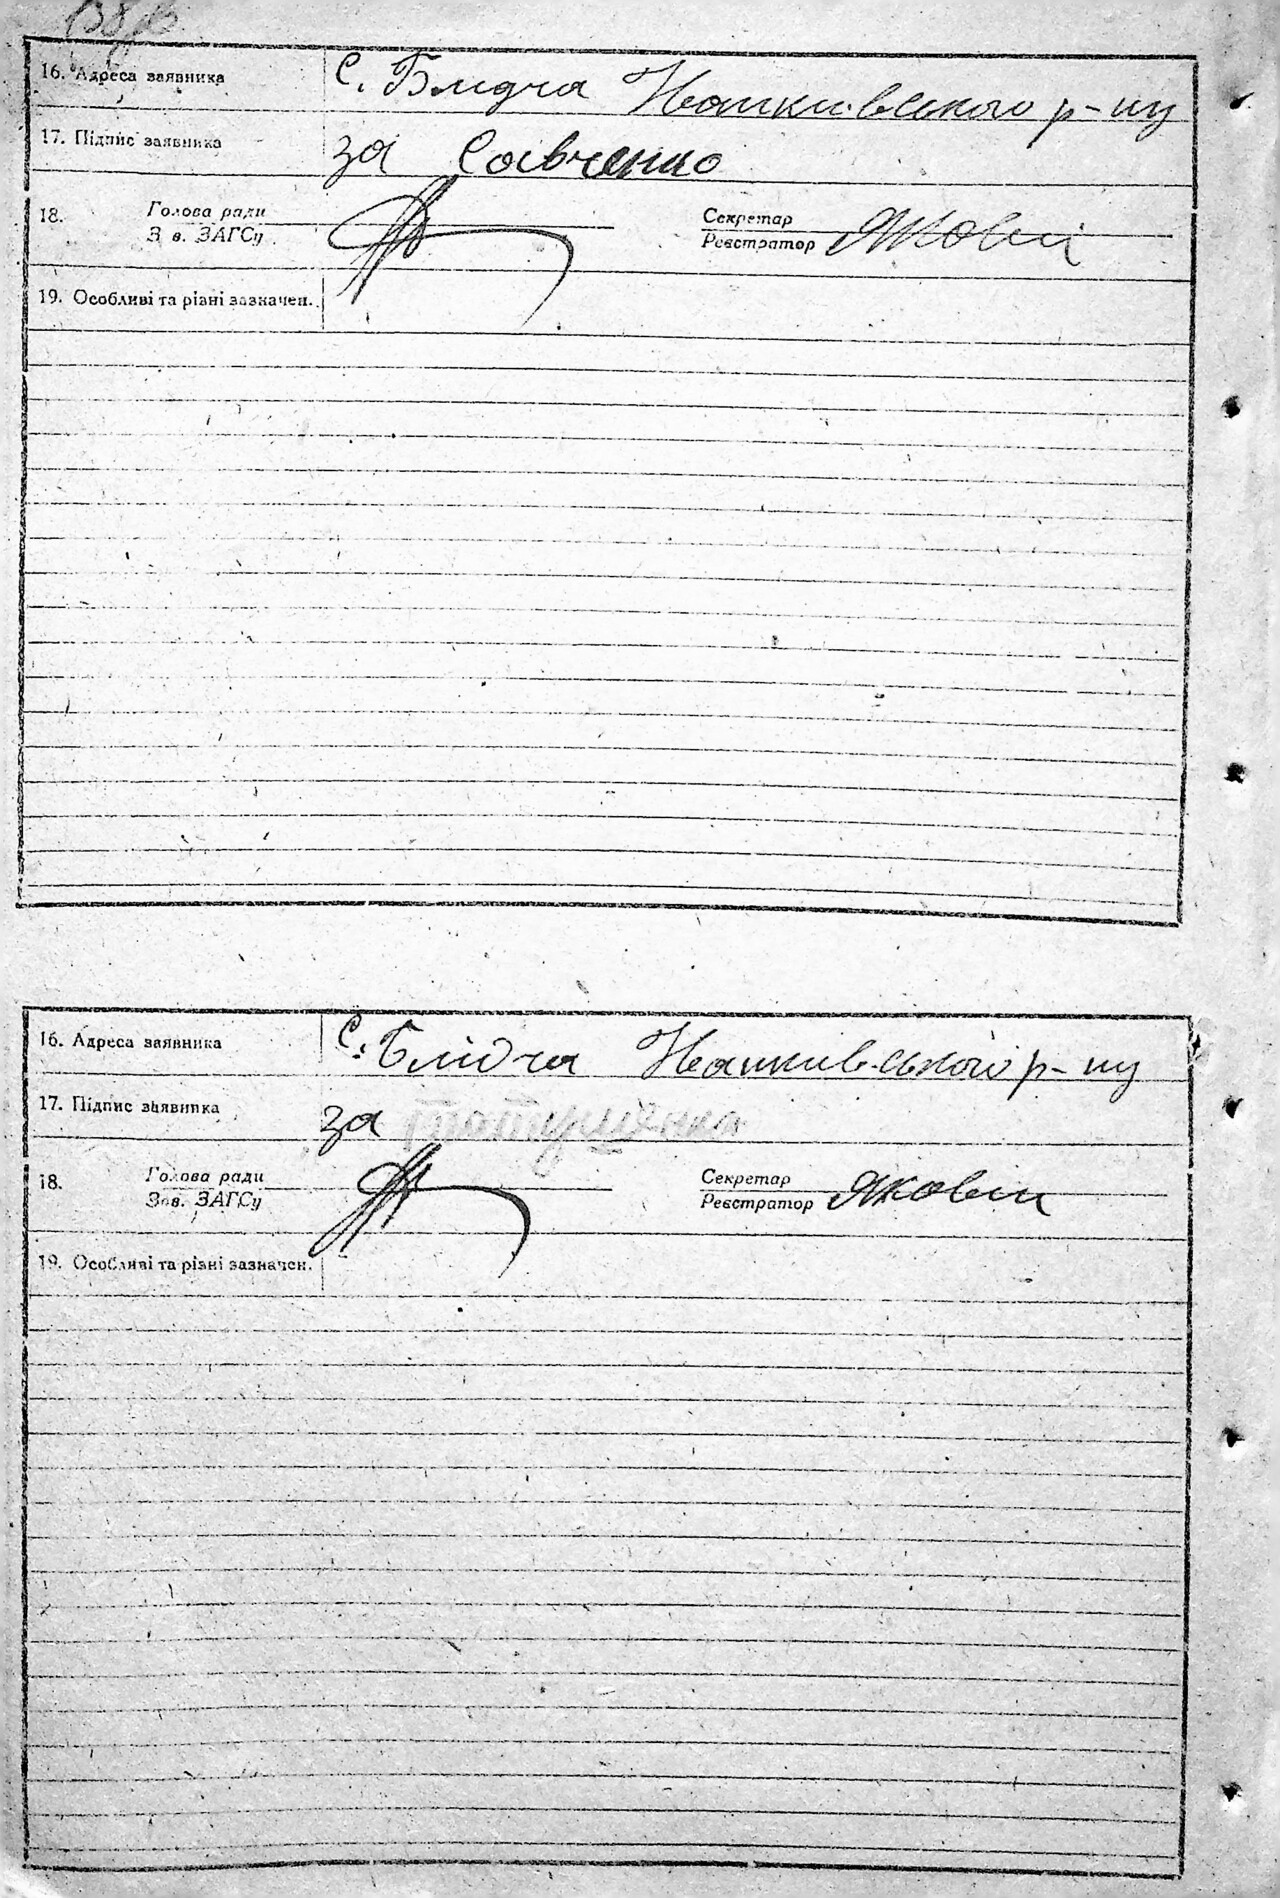 16. Адреса заявника с. Блидча Іванківського р-ну
17. Підпис заявника за Савченко
18. Голова ради Секретар
Зав. ЗАГСу Реєстратор
19. Особливі та різні зазначен.
16. Адреса заявника с. Блідча Іванківського р-ну
17. Підпис заявника за
18. Голова ради Секретар
Зав. ЗАГСу Реєстратор
19. Особливі та різні зазначен.